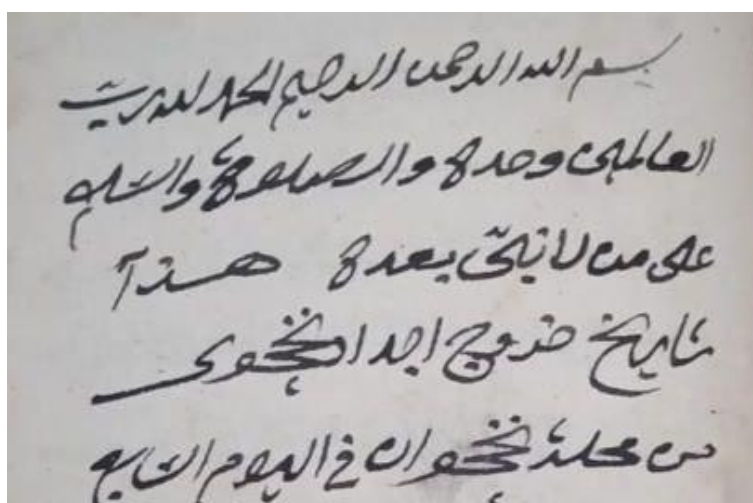 بسم الله الرحمن الرحيم الحمد لله رب
العالمين وحده والصلوة والسلام
على من لا نبي بعده هذا
تاريخ خروج اجدا
من محلة في اليوم السابع